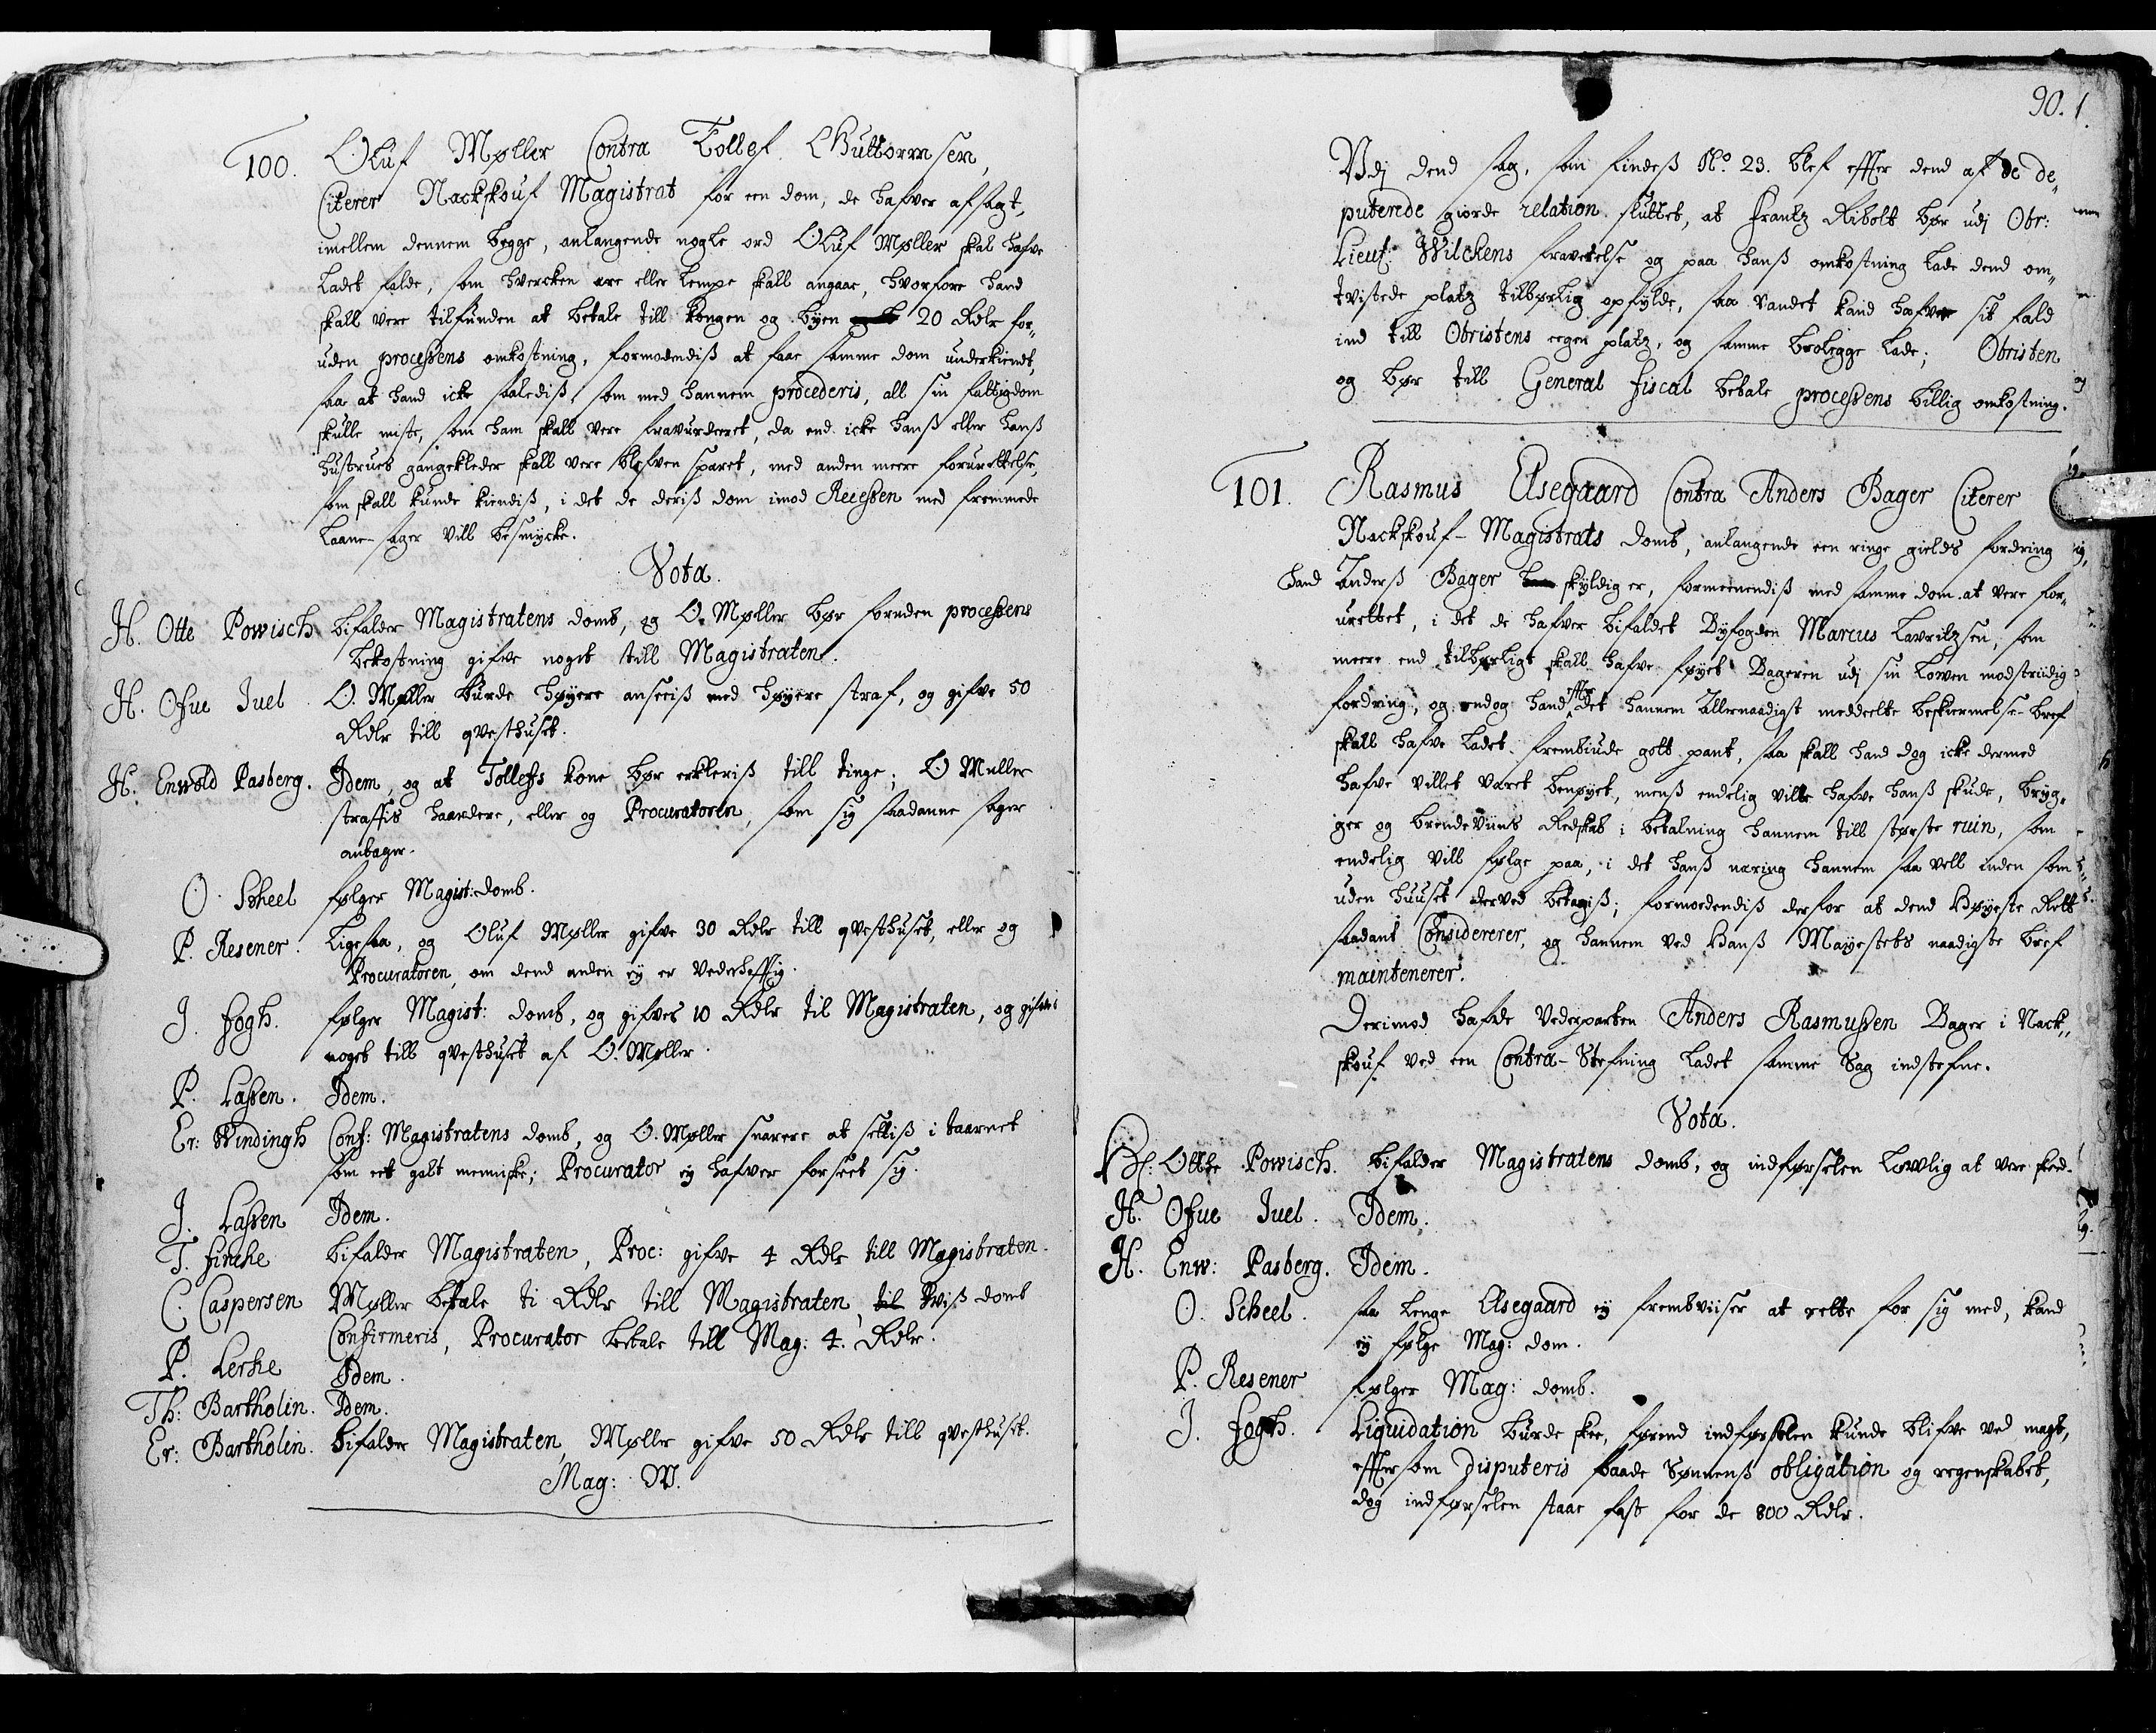 100. Oluf Møller Contra Tollef Guttormsen,
Citerer Nackskouf Magistrat for een dom, de hafver afsagt,
imellem dennem begge, anlangende nogle ord Oluf Møller skal hafve
ladet falde, som hvercken ære eller lempe skall angaae, hvorfore hand
skall vere tilfunden at betale till Kongen og byen 20 Rdlr for„
uden processens omkostning, formodendiß at faae samme dom underkiendt,
saa at hand icke saalediß, som med hannem procederis, all sin fattigdom
skulle miste, som ham skall vere fravurderet, da end icke hanß eller hanß
hustrues gangekleder skall vere blefven sparet, med anden meere forurettelse,
som skall kunde kiendiß, i det de deriß dom imod Recessen med fremmede
Laane-sager vill besmycke.
Vota.
H. Otte Powisch bifalder Magistratens domb, og O. Møller bør foruden processens
bekostning gifve noget till Magistraten.
H. Ofue Juel O. Møller burde høyere anseeiß med høyere straf, og gifve 50
Rdlr till qvesthuset.
H. Enwold Pasberg. Idem, og at Tollefs kone bør erkleriß till tinge; O Muller
straffis haardere, eller og Procuratoren, som sig saadanne sager
antager.
O. Scheel følger Magist: domb.
P. Resener. Ligesaa, og Oluf Møller gifve 30 Rdlr till qvesthuset, eller og
Procuratoren, om dend anden ey er Vederhefftig.
J. Fogh. følger Magist: domb, og gifves 10 Rdlr til Magistraten, og gifves
noget till qvesthuset af O. Møller.
P. Lassen. Idem.
Er: Vindingh Conf: Magistratens domb, og O. Møller snarere at settiß i taarnet
som eet galt menniske; Procurator ey hafver forseet sig.
J. Lassen Idem.
T. Fincke bifalder Magistraten, Proc: gifve 4 Rdlr till Magistraten.
C. Caspersen Møller betale ti Rdlr till Magistraten, til hviß domb
Confirmeris, Procurator betale till Mag: 4. Rdlr.
P. Lerke Idem.
Th: Bartholin. Idem.
Er: Bartholin. bifalder Magistraten, Møller gifve 50 Rdlr till qvesthuset.
Mag: W.
90. 1.
Udj dend sag, som findeß No. 23. blef effter dend af de de„
puterede giorde relation sluttet, at Frantz Ribolt bør udj Obr:
Lieut: Wilckens fraverelse og paa hanß omkostning lade dend om„
tvistede platz tilbørlig opfylde, saa vandet kand hafve sit fald
ind till Obristens eegen platz, og samme brolegge lade; Obristen
og bør till General Fiscal betale processens billig omkostning.
101. Rasmus Elsegaard Contra Anders Bager Citerer
Nackskouf-Magistrats domb, anlangende een ringe gields fordring
hand Anderß Bager skyldig er, formeenendiß med samme dom at vere for„
urettet, i det de hafver bifaldet Byfogden Marcus Lavritzsen, som
meere end tilbørligt skall hafve føyet Bageren udj sin Lowen modstridig
fordring, og endog hand effter det hannem Allernaadigst meddeelte beskiermelse-bref
skall hafve ladet frembiude gott pant, saa skall hand dog icke dermed
hafve villet været benøyet, menß endelig ville hafve hanß skude, bryg„
ger og brendeviins Redskab i betalning hannem till største ruin, som
endelig vill følge paa, i det hanß næring hannem saa vell inden som
uden huuset derved betagiß; formoedendiß derfor at dend Høyeste Rett
saadant Considererer, og hannem ved Hanß Mayestets naadigste bref
maintenerer.
Derimod hafde Vederparten Anders Rasmussen Bager i Nack„
skouf ved een Contra-Stefning ladet samme Sag indstefne.
Vota.
H: Otte Powisch. bifalder Magistratens domb, og indførselen Lowlig at vere skeed.
H. Ofue Juel. Idem.
H. Enw: Pasberg. Idem.
O. Scheel. saa lenge Elsegaard ey frembviiser at rette for sig med, kand
ey følge Mag: dom.
P. Resener følger Mag: domb.
J. Fogh. Liquidation burde skee, førend indførselen kunde blifve ved magt,
effter som disputeris baade Sønnenß obligation og regenskabet,
dog indførselen staae fast for de 800 Rdlr.